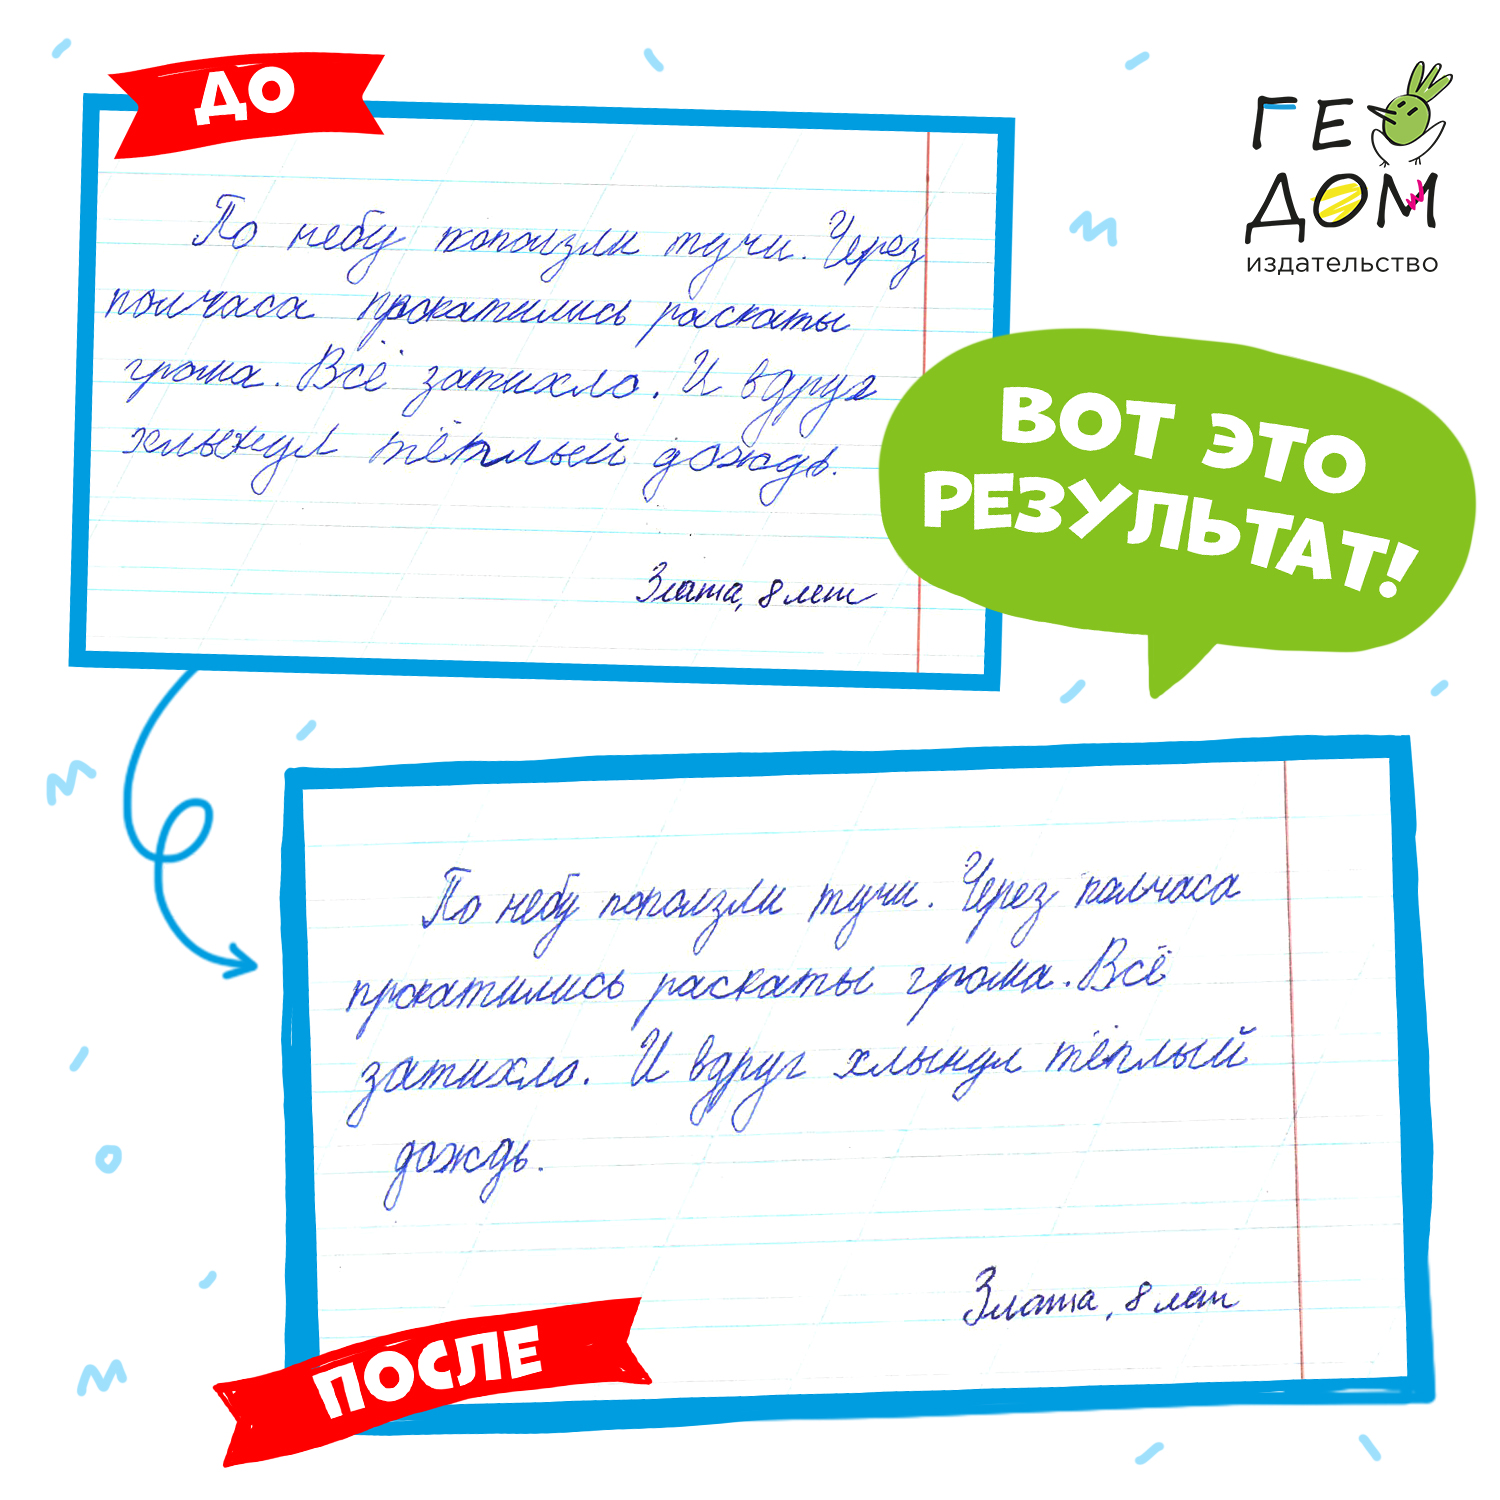 ДО
ГЕО
ДОМ
издательство
По небу поползли тучи. Через
полчаса прокатились раскаты
грома. Всё затихло. И вдруг
хлынул тёплый дождь.
Злата, 8 лет
ВОТ ЭТО
РЕЗУЛЬТАТ!
По небу поползли тучи. Через полчаса
прокатились раскаты грома. Всё
затихло. И вдруг хлынул тёплый
дождь.
Злата, 8 лет
ПОСЛЕ